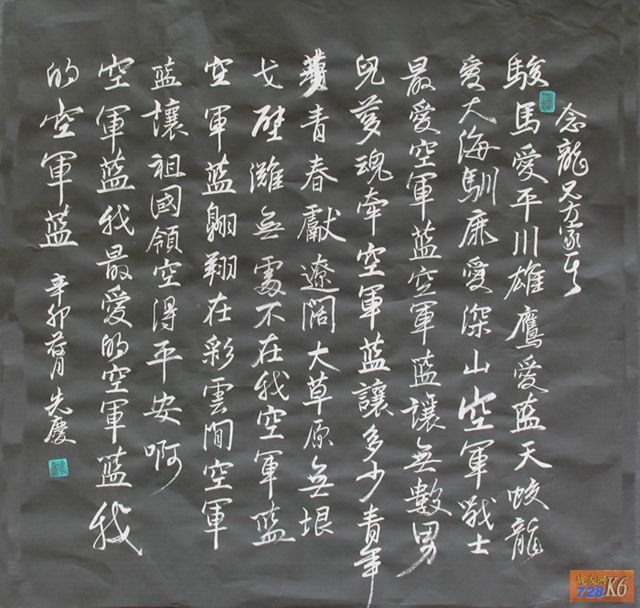 念龍兄方家正
駿馬愛平川雄鷹愛蓝天蛟龍
愛大海馴鹿愛深山空軍戰士
最愛空軍蓝空軍蓝讓無數男
兒夢魂牽空軍蓝讓多少青年
青春獻遼闊大草原無垠
戈壁灘無處不在我空軍蓝
空軍蓝翱翔在彩雲間空軍
蓝讓祖國領空得平安啊
空軍蓝我最愛的空軍蓝我
的空軍蓝
辛卯 月 先慶
战友网
728 K6